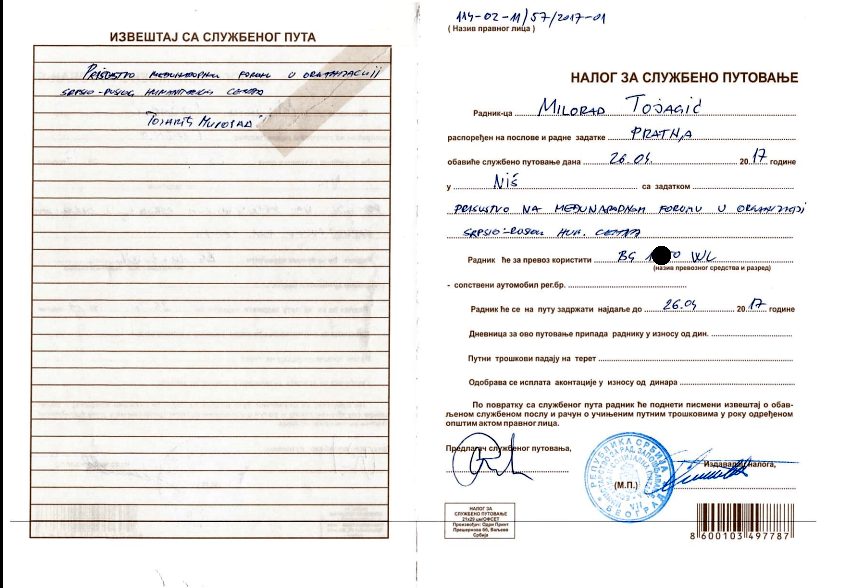 ИЗВЕШТАЈ СА СЛУЖБЕНОГ ПУТА
PRISUSTVO MEĐUNARODNOM FORUMU U ORGANIZACIJI
SRPSKO-RUSKOG HUMANITARNOG CENTRA
114-02-11/57/2017-01
( Назив правног лица )
НАЛОГ ЗА СЛУЖБЕНО ПУТОВАЊЕ
Радник-ца MILORAD TOJAGIĆ
распоређен на послове и радне задатке PRATNJA
обавиће службено путовање дана 26.04. 2017 године
у NIŠ са задатком
PRISUSTVO NA MEĐUNARODNOM FORUMU U ORGANIZACIJI
SRPSKO-RUSKOG HUM. CENTRA
Радник ће за превоз користити BG 1 0 WL
(назив превозног средства и разред)
- сопствени аутомобил рег.бр.
Радник ће се на путу задржати најдаље до 26.04 2017 године
Дневница за ово путовање припада раднику у износу од дин.
Путни трошкови падају на терет
Одобрава се исплата аконтације у износу од динара
По повратку са службеног пута радник ће поднети писмени извештај о обав-
љеном службеном послу и рачун о учињеним путним трошковима у року одређеном
општим актом правног лица.
Предлагач службеног путовања,
Издавалац налога,
(М.П.)
РЕПУБЛИКА СРБИЈА
БЕОГРАД
VII
НАЛОГ ЗА
СЛУЖБЕНО ПУТОВАЊЕ
21x29 цм/ОФСЕТ
Произвођач: Оџди Принт
Прешернова 60, Ваљево
Србија
8 600103 497787